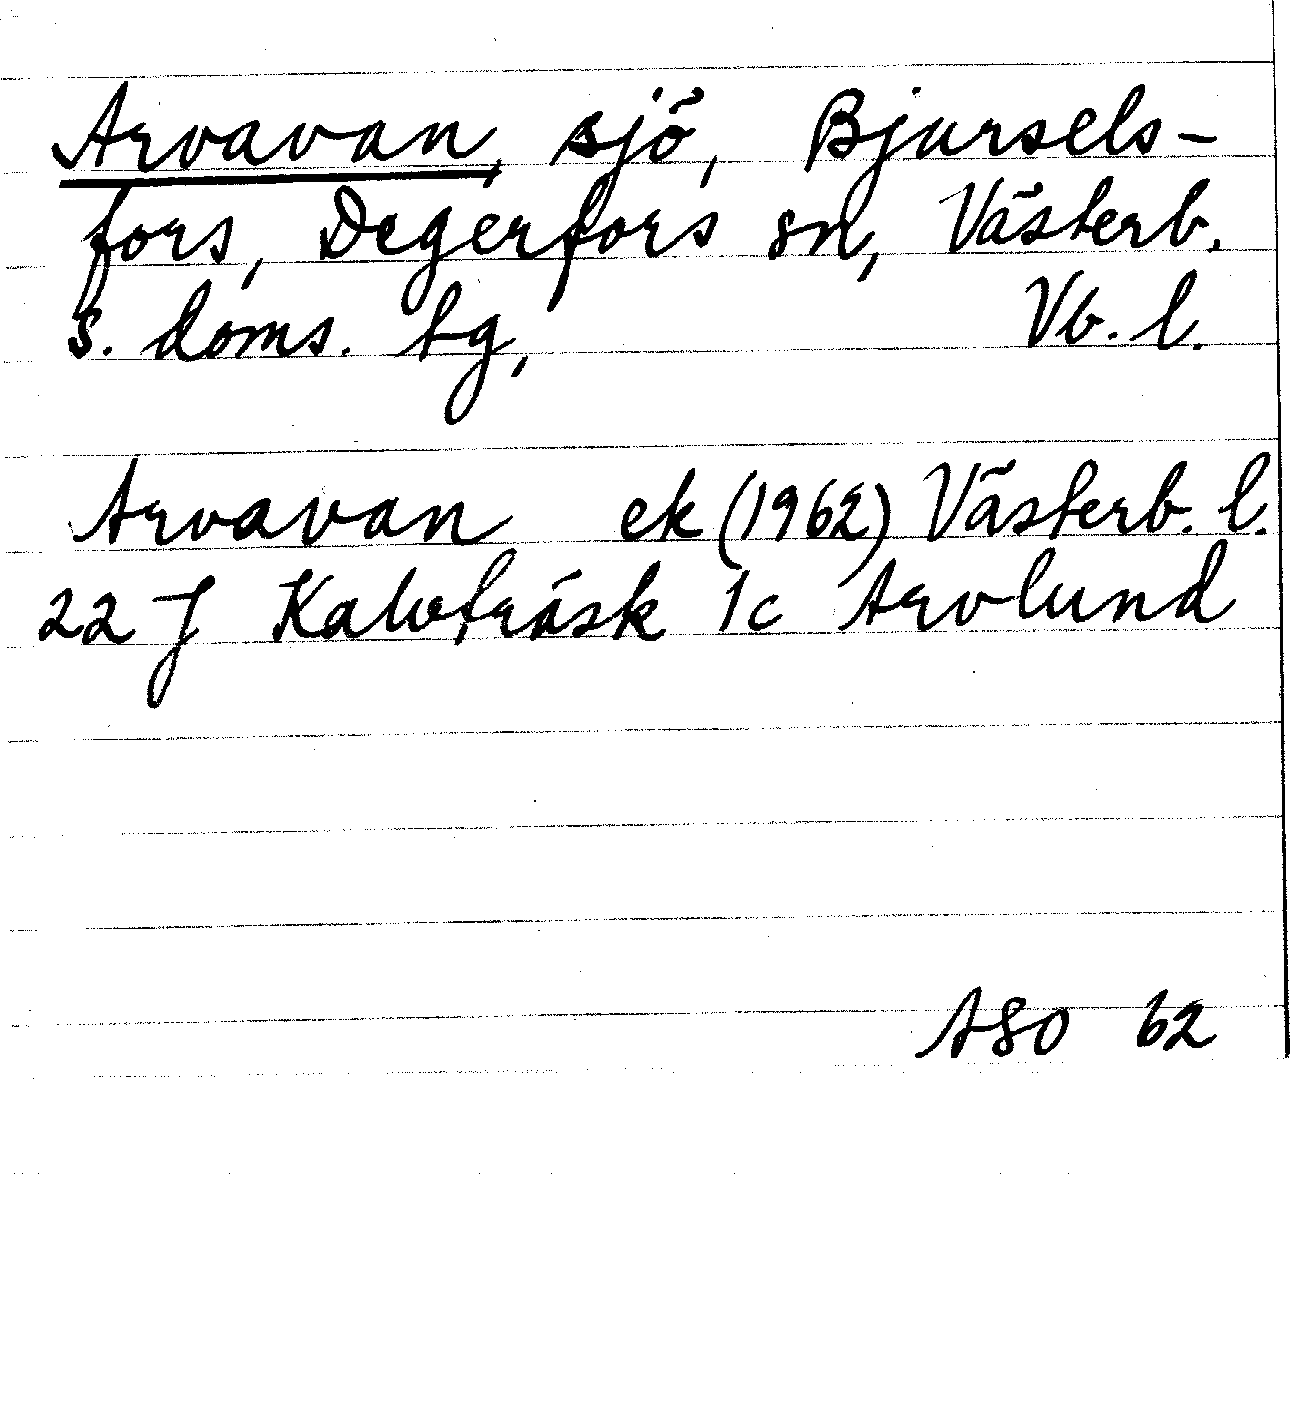 Arvavan, sjö, Bjursels-
fors, Degerfors sn, Västerb.
s. doms. tg, Vb. l.
Arvavan ek (1962) Västerb. l.
22 J Kalvträsk 1c Arvlund
ASO 62